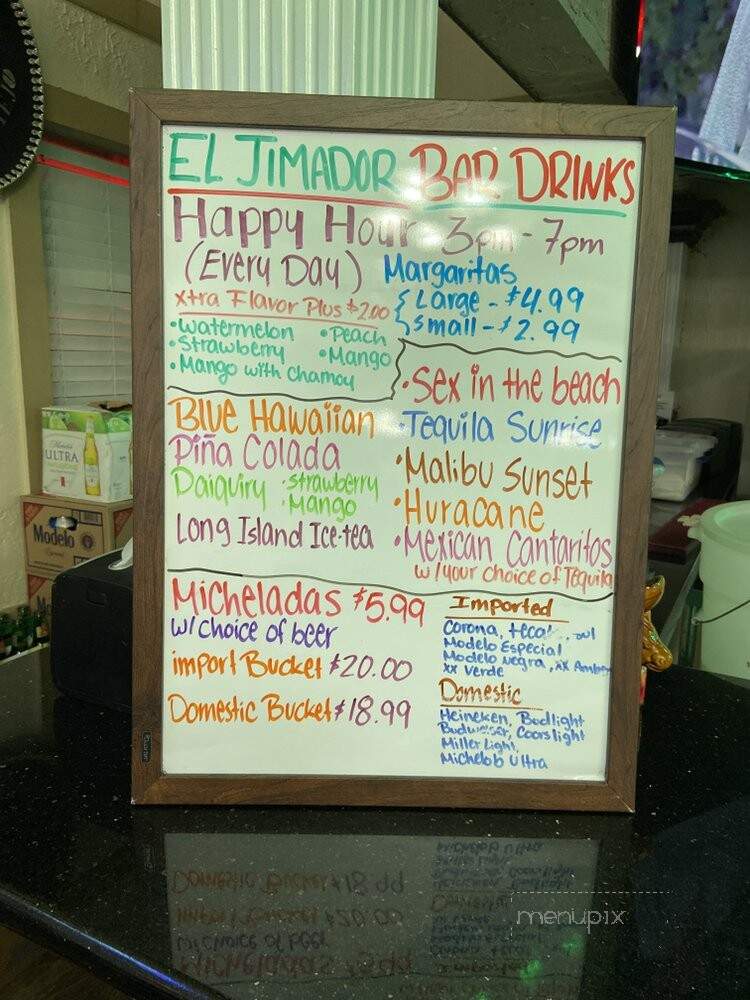 EL JIMADOR BAR DRINKS
Happy Hour 3pm - 7pm
(Every Day)
Margaritas
Large - $4.99
Small - $2.99
Xtra Flavor Plus $2.00
•Watermelon •Peach
•Strawberry •Mango
•Mango with Chamoy
•Sex in the beach
•Tequila Sunrise
•Malibu Sunset
•Huracane
•Mexican Cantaritos
w/your choice of Tequila
Blue Hawaiian
Piña Colada
Daiquiry •Strawberry
•Mango
Long Island Ice-tea
Micheladas $5.99
w/choice of beer
import Bucket $20.00
Domestic Bucket $18.99
Imported
Corona,
Modelo Especial
Modelo Negra, XX Amber
XX Verde
Domestic
Heineken, Budlight
Budweiser, Coors light
Miller Light,
Michelob Ultra
ULTRA
Modelo
Especial
menupix